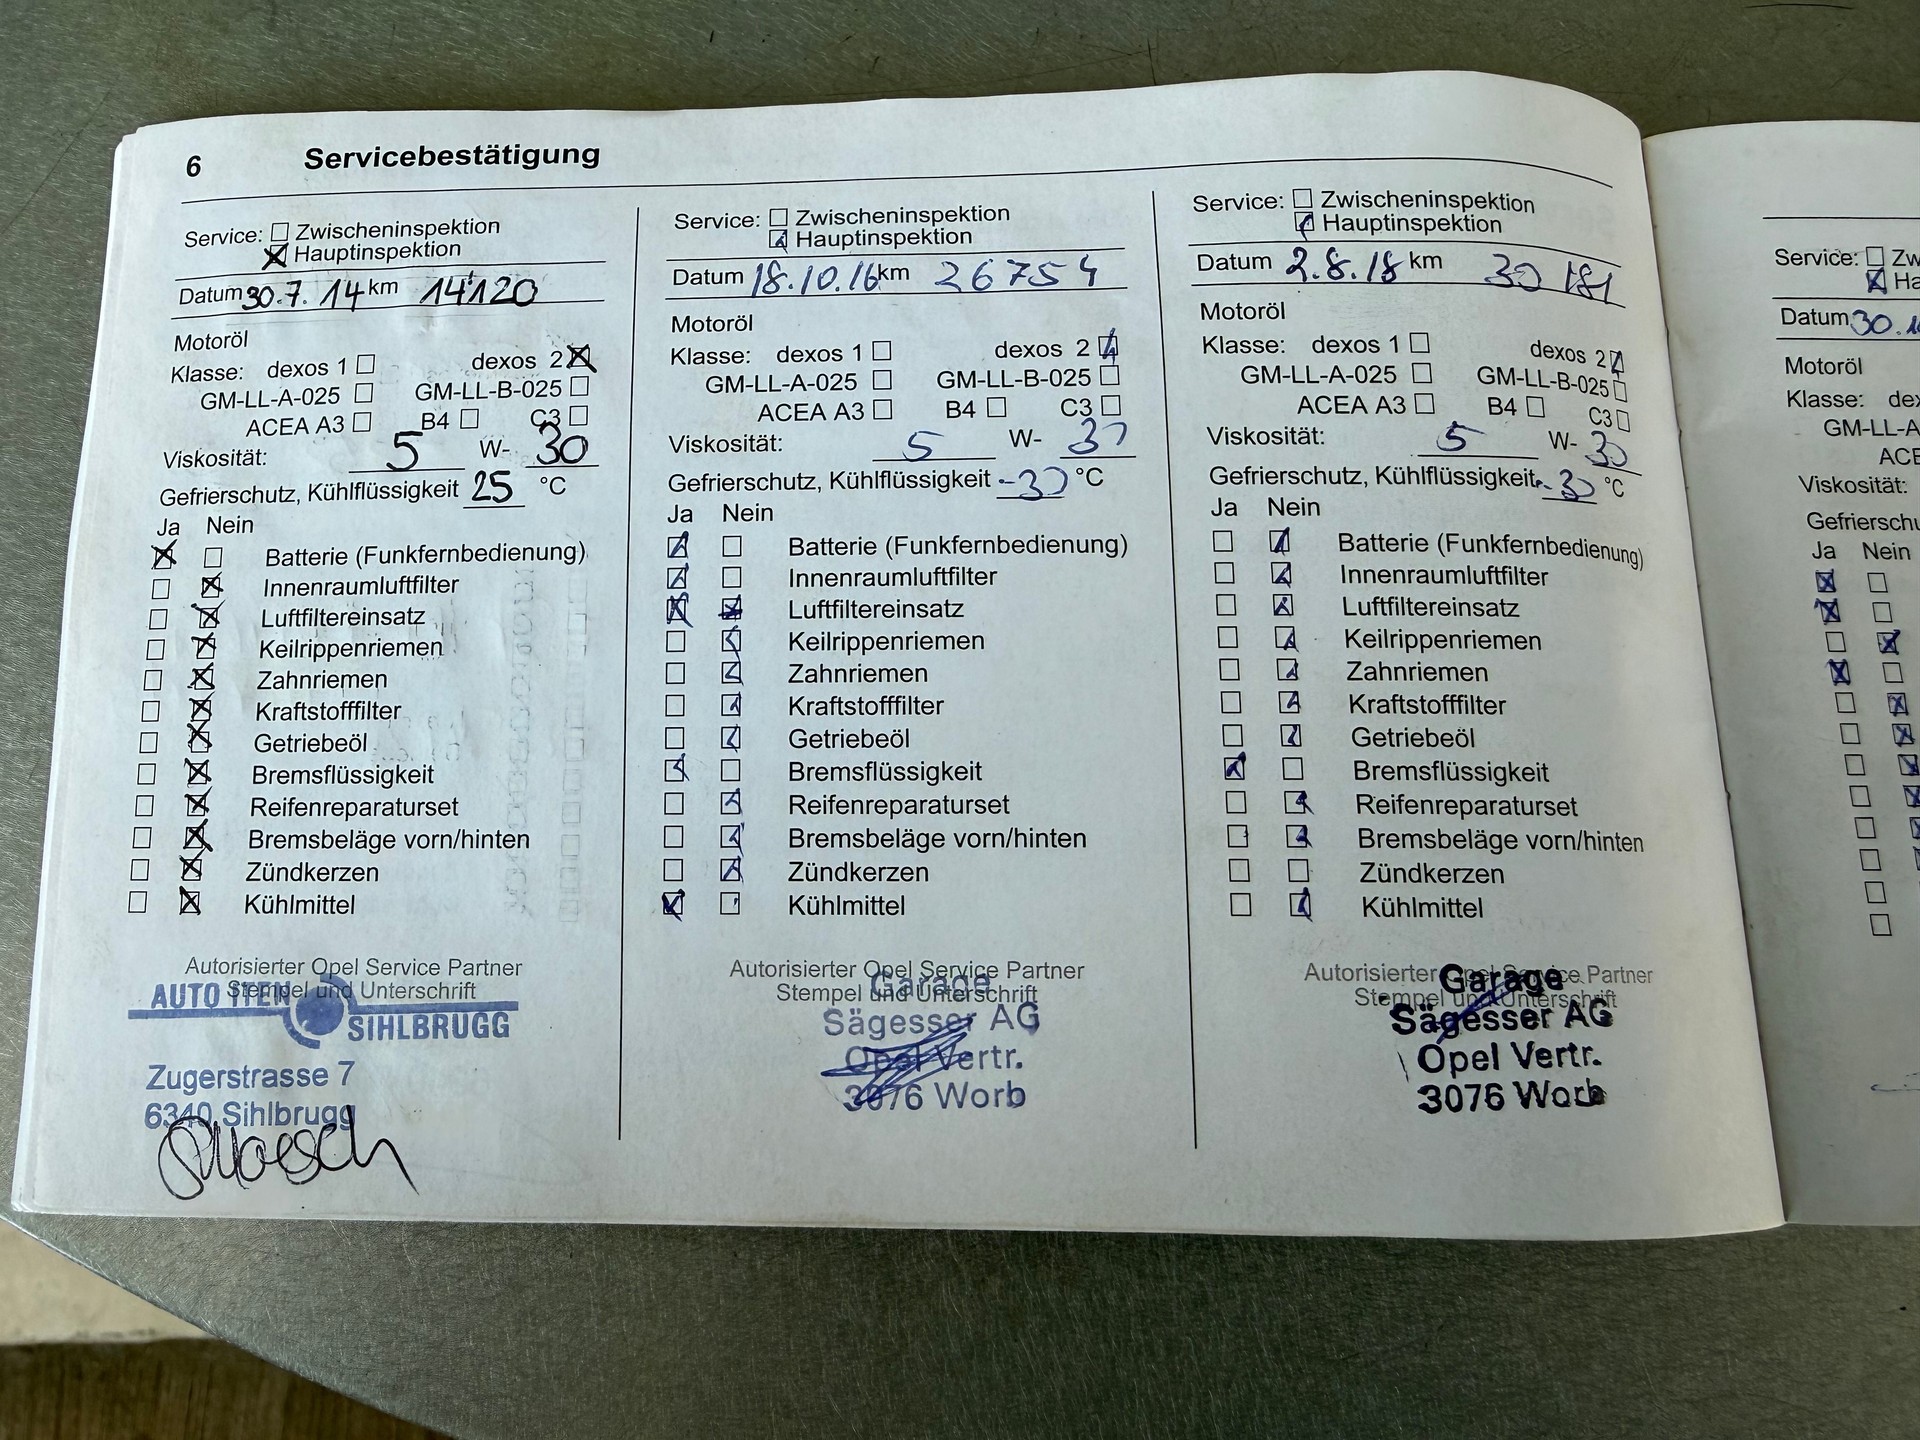 6 Servicebestätigung
Service: Zwischeninspektion
Hauptinspektion
Datum 30.7.14 km 14'120
Motoröl
Klasse: dexos 1 dexos 2
GM-LL-A-025 GM-LL-B-025
ACEA A3 B4 C3
Viskosität: 5 W- 30
Gefrierschutz, Kühlflüssigkeit 25 °C
Ja Nein
Batterie (Funkfernbedienung)
Innenraumluftfilter
Luftfiltereinsatz
Keilrippenriemen
Zahnriemen
Kraftstofffilter
Getriebeöl
Bremsflüssigkeit
Reifenreparaturset
Bremsbeläge vorn/hinten
Zündkerzen
Kühlmittel
Autorisierter Opel Service Partner
Stempel und Unterschrift
AUTO ITEN
SIHLBRUGG
Zugerstrasse 7
6340 Sihlbrugg
Service: Zwischeninspektion
Hauptinspektion
Datum 18.10.16 km 26754
Motoröl
Klasse: dexos 1 dexos 2
GM-LL-A-025 GM-LL-B-025
ACEA A3 B4 C3
Viskosität: 5 W- 30
Gefrierschutz, Kühlflüssigkeit -30 °C
Ja Nein
Batterie (Funkfernbedienung)
Innenraumluftfilter
Luftfiltereinsatz
Keilrippenriemen
Zahnriemen
Kraftstofffilter
Getriebeöl
Bremsflüssigkeit
Reifenreparaturset
Bremsbeläge vorn/hinten
Zündkerzen
Kühlmittel
Autorisierter Opel Service Partner
Stempel und Unterschrift
Garage
Sägesser AG
Opel Vertr.
3076 Worb
Service: Zwischeninspektion
Hauptinspektion
Datum 2.8.18 km 30 181
Motoröl
Klasse: dexos 1 dexos 2
GM-LL-A-025 GM-LL-B-025
ACEA A3 B4 C3
Viskosität: 5 W- 30
Gefrierschutz, Kühlflüssigkeit -30 °C
Ja Nein
Batterie (Funkfernbedienung)
Innenraumluftfilter
Luftfiltereinsatz
Keilrippenriemen
Zahnriemen
Kraftstofffilter
Getriebeöl
Bremsflüssigkeit
Reifenreparaturset
Bremsbeläge vorn/hinten
Zündkerzen
Kühlmittel
Autorisierter Opel Service Partner
Stempel und Unterschrift
Garage
Sägesser AG
Opel Vertr.
3076 Worb
Service: Zw
Ha
Datum 30.
Motoröl
Klasse: dex
GM-LL-A
ACE
Viskosität:
Gefrierschu
Ja Nein